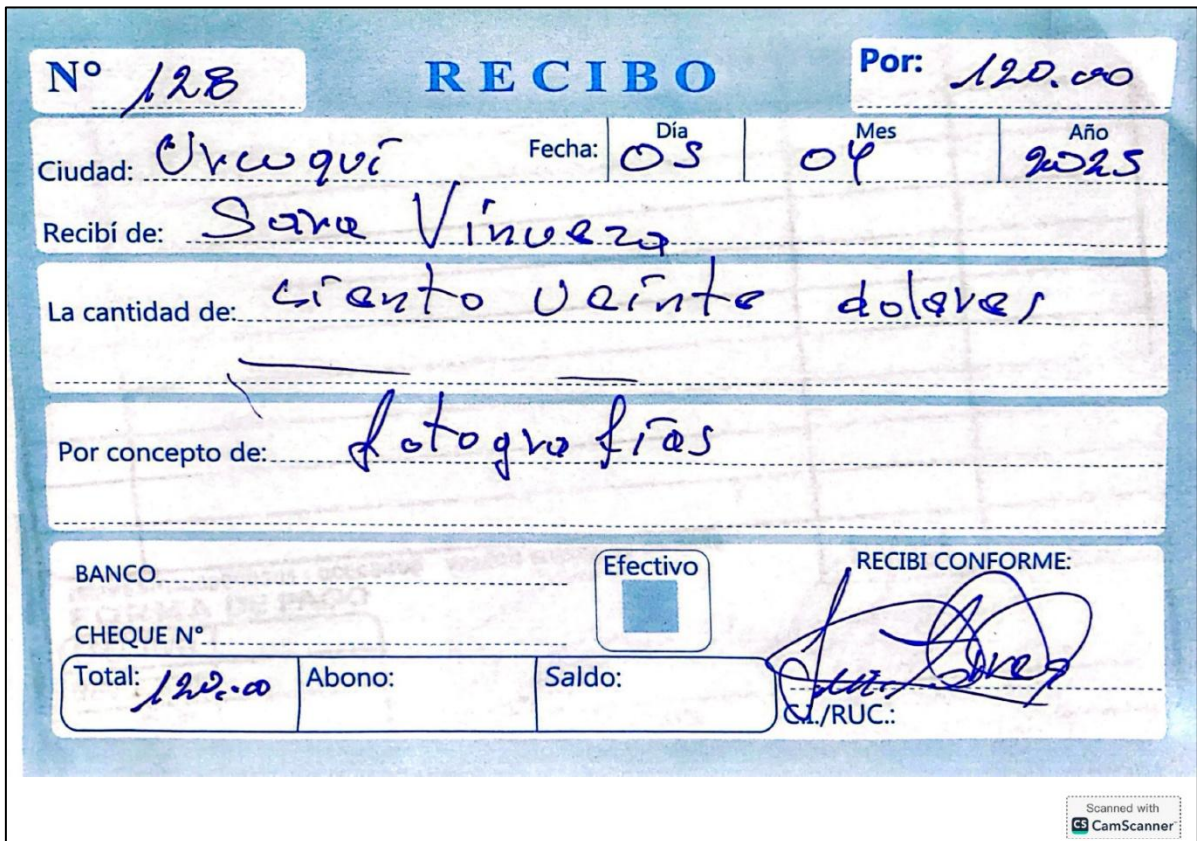 Nº 128 RECIBO Por: 120.00
Día Mes Año
Ciudad: Urcuquí Fecha: 05 04 2025
Recibí de: Sara Vinueza
La cantidad de: ciento veinte dolares
Por concepto de: fotografías
BANCO Efectivo RECIBI CONFORME:
CHEQUE Nº
Total: 120.00 Abono: Saldo:
C.I./RUC.:
Scanned with
CS CamScanner